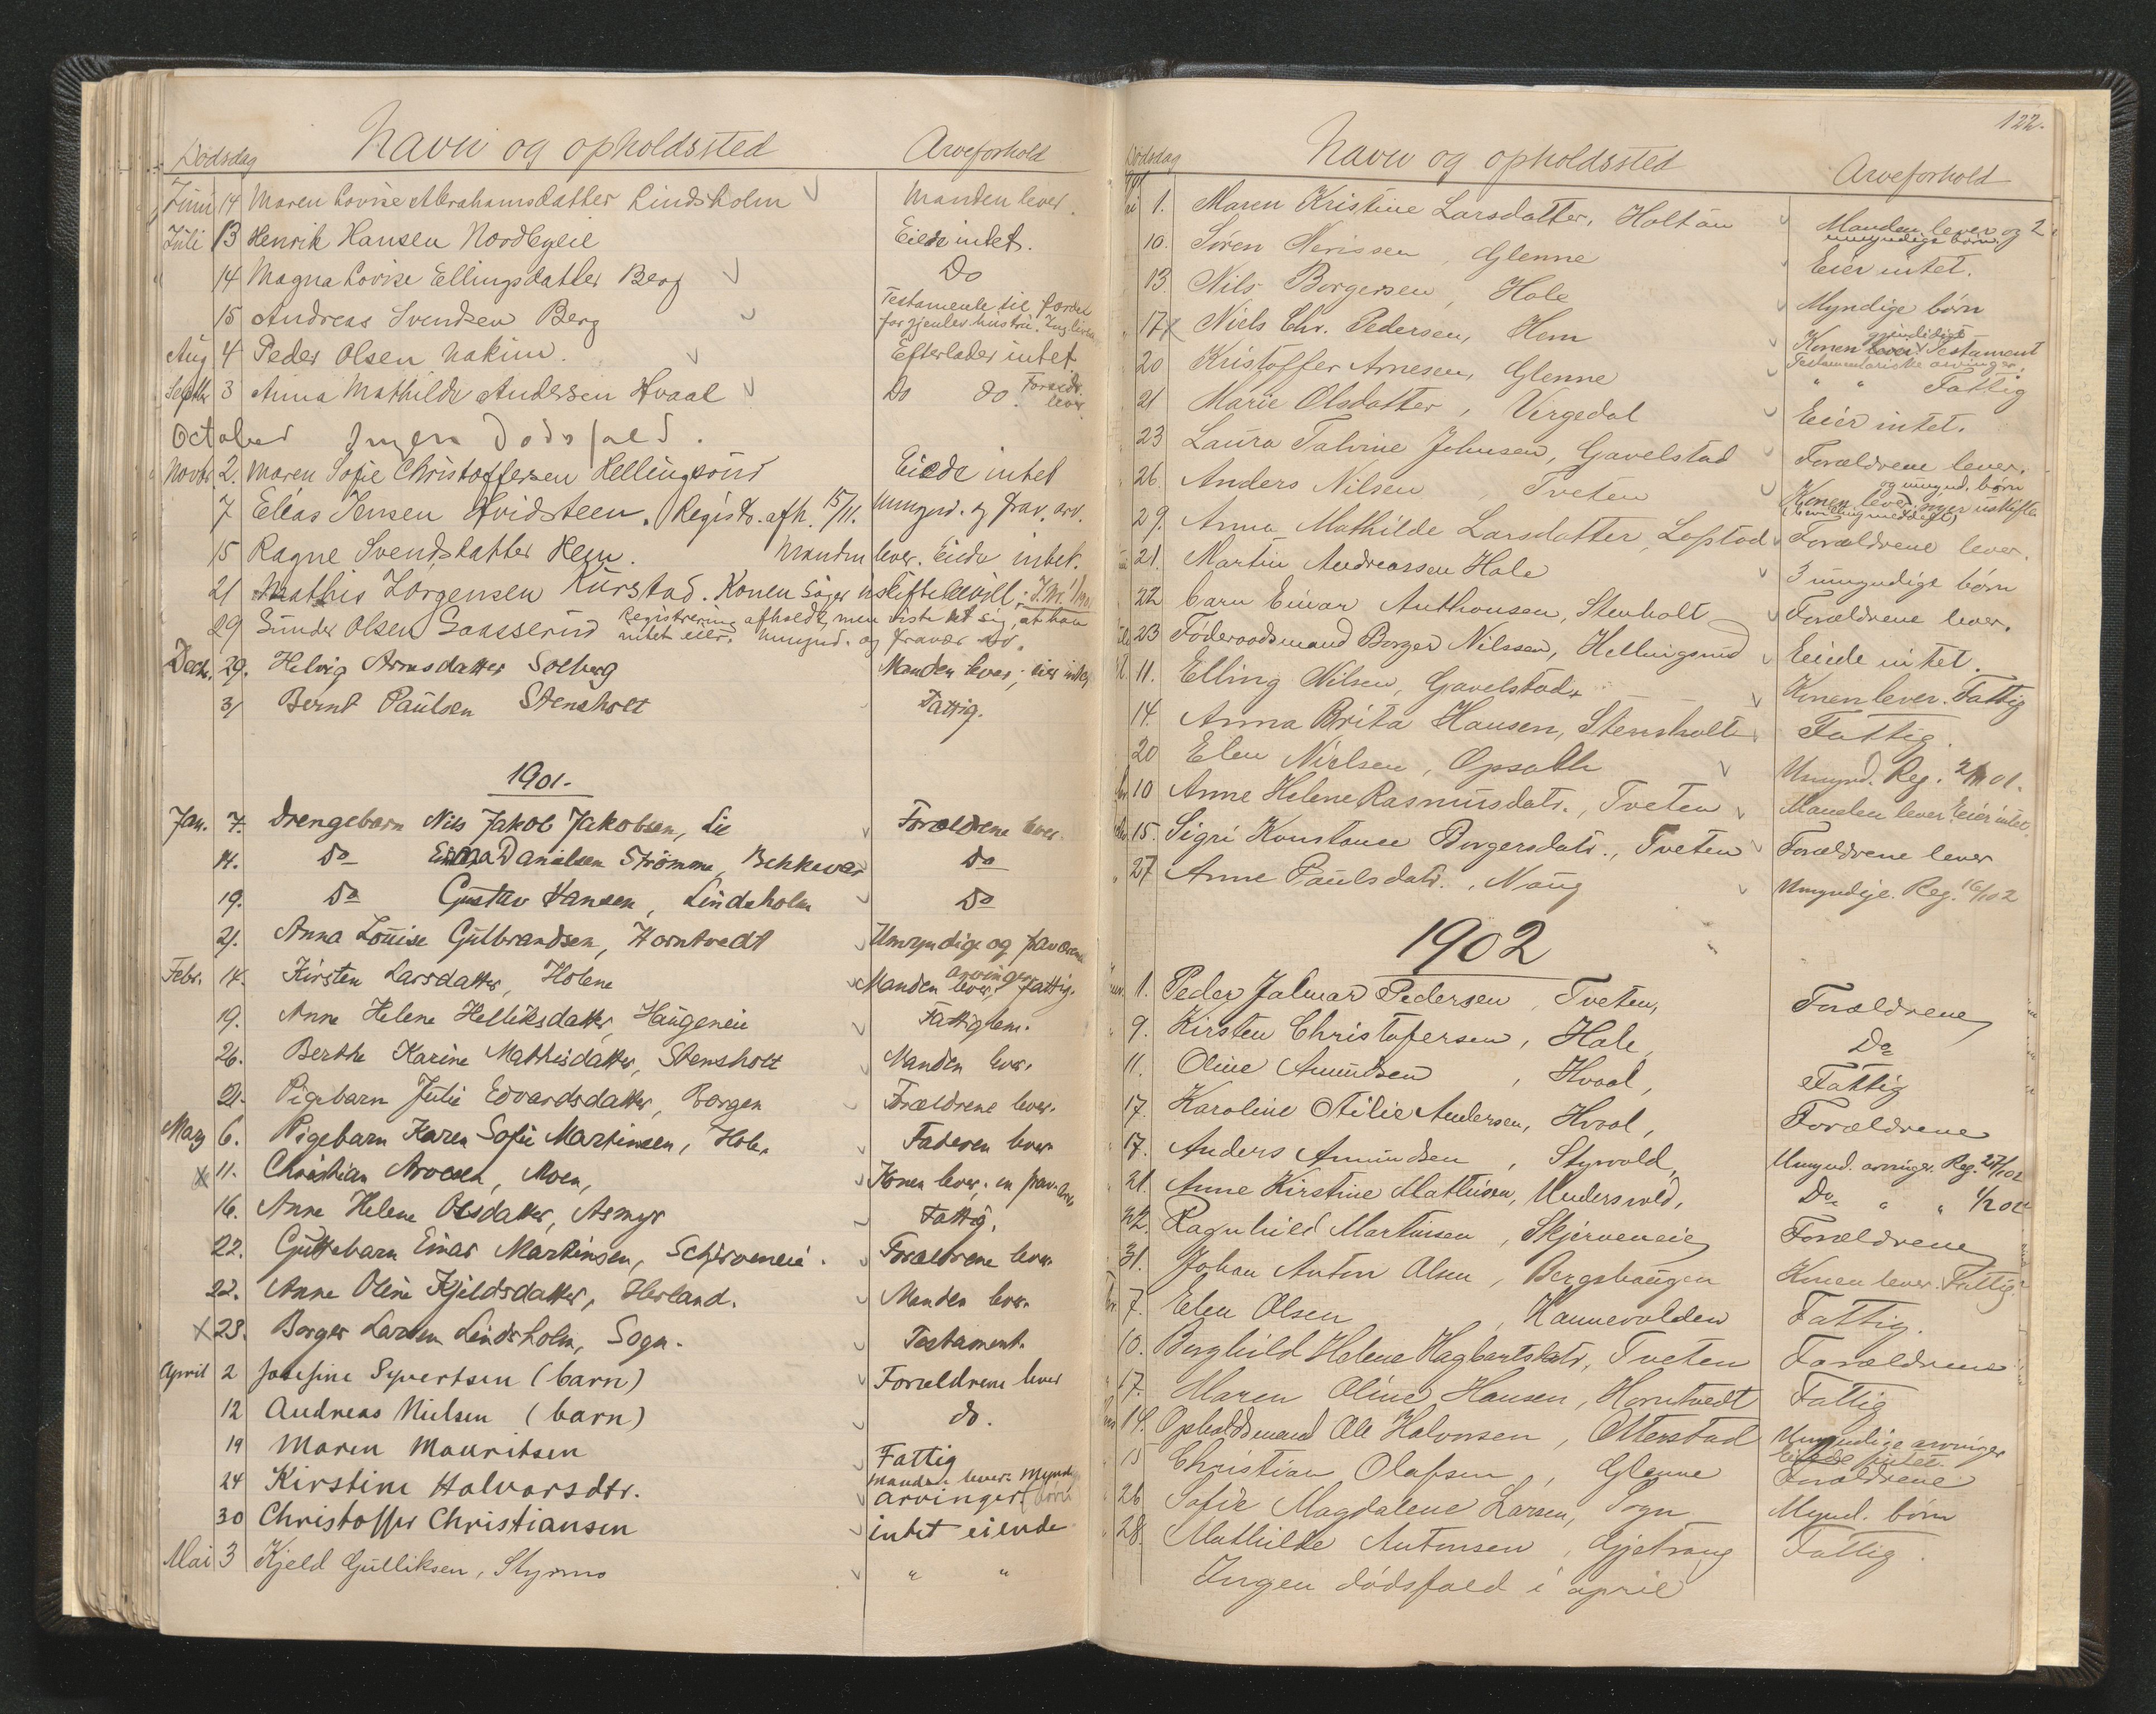 Dødsdag Navn og opholdssted Arveforhold
Juni 14 Maren Lovise Abrahamsdatter Lindsholm Manden lever.
Juli 13 Henrik Hansen Nordbyeie Eiede intet.
" 14 Magna Lovise Ellingsdatter Berg Do
15 Andreas Svendsen Berg Testamente til fordel
for gjenlev. hustru.
Aug 4 Peder Olsen Nakim. Efterlader intet.
Septbr 3 Anna Mathilde Andersen Hvaal Do do. Foreldr. lever
October Ingen Dødsfald.
Novbr 2. Maren Sofie Christoffersen Hellingsrud Eiede intet
7 Elias Jensen Hvidsteen. Registr. afh. 15/11. Umynd. og frav. arv.
15 Ragne Svendsdatter Hem. Manden lever. Eiede intet.
21 Mathis Jørgensen Kurstad. Konen søger uskiftebevill.
29 Gunder Olsen Gaasserud Registrering afholdt, men viste det sig, at han
intet eier. Umynd. og fravær. arv.
Decbr. 29. Helvig Arnesdatter Solberg Manden lever; eier intet
31 Bernt Paulsen Stensholt Fattig.
1901.-
Jan. 7. Drengebarn Nils Jakob Jakobsen, Lie Forældrene lever.
14. Do Danielsen Strömme, Bekkevar Do
19. Do Gustav Hansen, Lindsholm Do
21. Anna Louise Gulbrandsen, Horntvedt Umyndige og fraværende
arvinger
Febr. 14. Kirsten Larsdatter, Holene Manden lever, fattig.
19. Anne Helene Helliksdatter, Haugeneie Fattiglem.
26. Berthe Karine Mathisdatter, Stensholt Manden lever.
21. Pigebarn Julie Edvardsdatter, Borgen Forældrene lever.
Marz 6. Pigebarn Karen Sofie Martinsen, Hole, Faderen lever
x 11. Christian Arvesen, Moen, Konen lever. en frav.
16. Anne Helene Olsdatter, Asmyr Fattig.
22. Guttebarn Einar Martinsen, Schjerveneie. Forældrene lever
22. Anne Oline Kjeldsdatter, Herland. Manden lever.
x 23. Borger Larsen Lindsholm, Sogn. Testament.
April 2 Josefine Syvertsen (barn) Forældrene lever
12 Andreas Nielsen (barn) do.
19 Maren Mauritsen Fattig
24 Kirstine Halvorsdtr. Manden lever. Mynd.
arvinger. (børn
30 Christoffer Christiansen intet eiende
Mai 3 Kjeld Gulliksen, Styrmo " "
122.
Dødsdag Navn og opholdssted Arveforhold
1. Maren Kristine Larsdatter, Holtan Manden lever og 2
umyndige børn.
10. Søren Nerissen, Glenne Eier intet.
13. Nils Borgersen, Hole Myndige børn
17 x Niels Chr. Pedersen, Hem Konen lever. Testament
20 Kristoffer Arnesen, Glenne Testamentariske arvinger.
21 Marie Olsdatter, Vergedal " " Fattig
23 Laura Talvine Johnsen, Gavelstad Eier intet.
26. Anders Nilsen, Tveten Forældrene lever.
og umynd. børn
29. Anna Mathilde Larsdatter, Løpstad Konen lever
21. Martin Andreassen Hole Forældrene lever.
22 barn Einar Anthonsen, Stenholt 3 umyndige børn
23 Føderaadsmand Borger Nilssen, Hellingsrud Forældrene lever.
11. Elling Nilsen, Gavelstad Eiede intet.
14. Anna Brita Hansen, Stensholt Konen lever. Fattig
20 Elen Nielsen, Opsahl Fattig.
10 Anne Helene Rasmusdatr., Tveten Umynd. Reg.
15. Sigri Konstance Borgersdatr., Tveten Manden lever. Eier intet.
27 Anne Paulsdatr., Haug Forældrene lever
Umyndige. Reg. 16/1 02
1902
1. Peder Jalmar Pedersen, Tveten, Forældrene
9. Kirsten Christofersen, Hole, Do
11. Oline Amundsen, Hvaal, Fattig
17. Karoline Otilie Andersen, Hvaal, Forældrene
17. Anders Amundsen, Styvold, Umynd. arvinger. Reg. 27/1 02
21. Anne Kirstine Mathisen, Undersvold, Do " "
22. Ragnhild Martinsen, Skjerveneie Forældrene
31. Johan Anton Olsen, Bergshaugen Konen lever. Fattig
7. Elen Olsen, Hannevolden Fattig.
10. Borghild Helene Hagbartsdatr, Tveten Forældrene
17. Maren Oline Hansen, Horntvedt Fattig
14. Opholdsmand Ole Halvorsen, Otterstad Umyndige arvinger
Eiede intet.
15 Christian Olafsen, Glenne Forældrene
26 Sofie Magdalene Larsen, Sogn Mynd. børn
28. Mathilde Antonsen, Gjetrang Fattig.
Ingen dødsfald i april